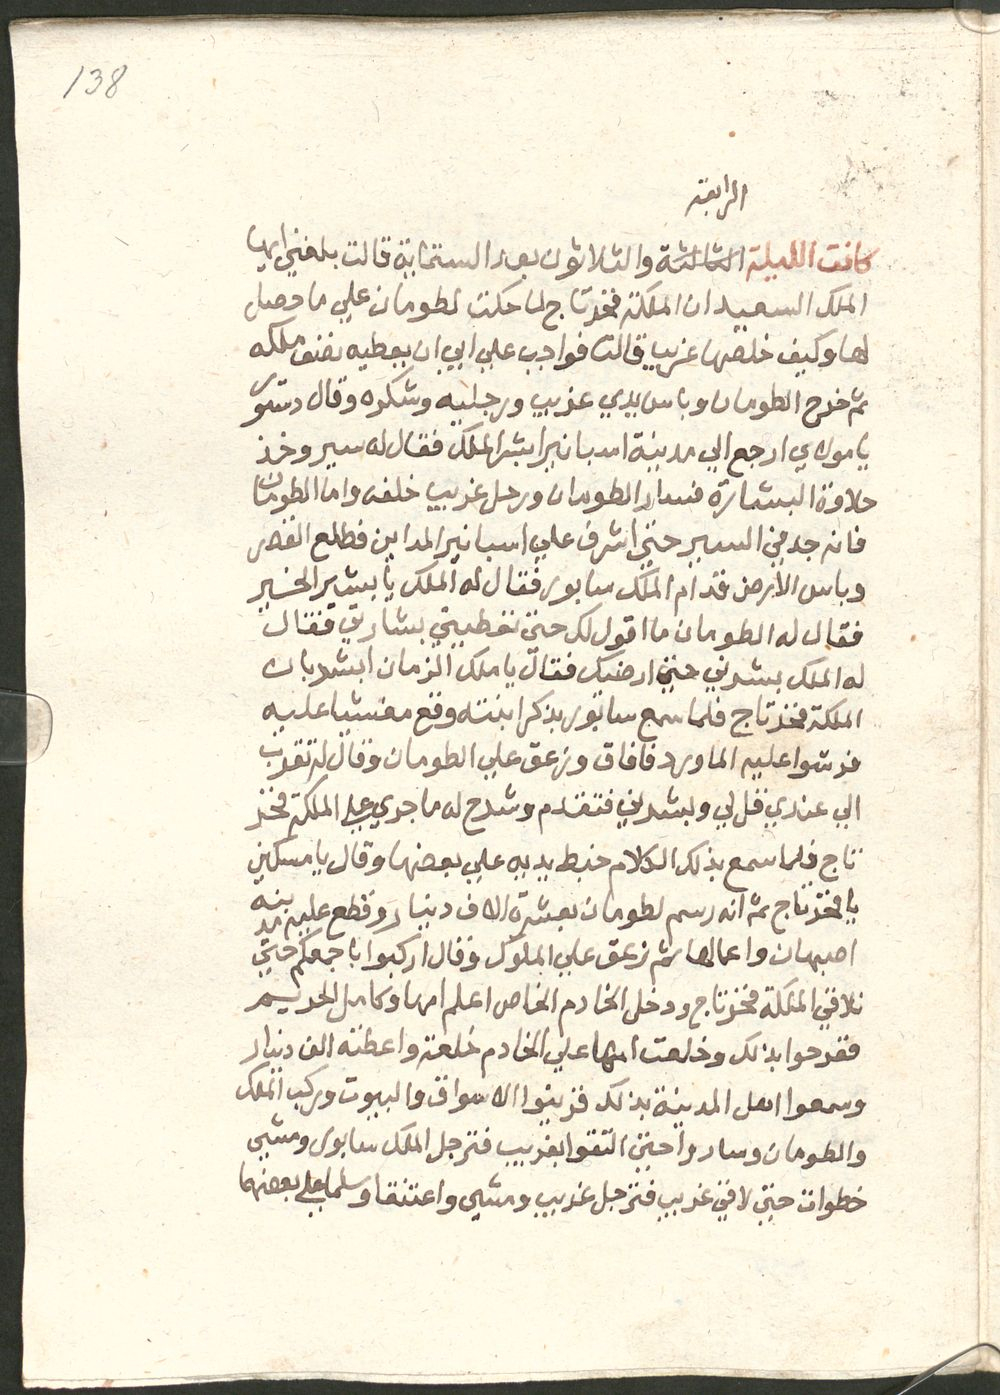 138
الرابعة
كانت الليلة الثالثة والثلاثون بعد الستماية قالت بلغني ايها
الملك السعيد ان الملكة فخرتاج لما حكت لطومان علي ما حصل
لها وكيف خلصها غريب قالت فواجب علي ابي ان يعطيه نصف ملكه
ثم خرج الطومان وباس يدي غريب ورجليه وشكره وقال دستور
يا مولاي ارجع الي مدينة اسبانير ابشر الملك فقال له سير وخذ
حلاوة البشارة فسار الطومان ورحل غريب خلفه واما الطومان
فانه جد في السير حتي اشرف علي اسبانير المداين فطلع القصر
وباس الارض قدام الملك سابور فقال له الملك يا بشير الخير
فقال له الطومان ما اقول لك حتي تعطيني بشارتي فقال
له الملك بشرني حتي ارضيك فقال يا ملك الزمان ابشر بان
الملكة فخرتاج فلما سمع سابور بذكر ابنته وقع مغشيا عليه
فرشوا عليه الماورد فافاق وزعق علي الطومان وقال له تقرب
الي عندي قل لي وبشرني فتقدم وشرح له ما جري علي الملكة فخر
تاج فلما سمع بذلك الكلام خبط يديه علي بعضها وقال يا مسكين
يا فخرتاج ثم انه رسم لطومان بعشرة الاف دينار وقطع عليه مدينة
اصبهان واعمالها ثم زعق علي الملوك وقال اركبوا باجمعكم حتي
نلاقي الملكة فخرتاج ودخل الخادم الخاص اعلم امها وكامل الحريم
ففرحوا بذلك وخلعت امها علي الخادم خلعة واعطته الف دينار
وسمعوا اهل المدينة بذلك فزينوا الاسواق والبيوت وركب الملك
والطومان وساروا حتي التقوا بغريب فترجل الملك سابور ومشي
خطوات حتي لاقي غريب فترجل غريب ومشي واعتنقا وسلما علي بعضهما